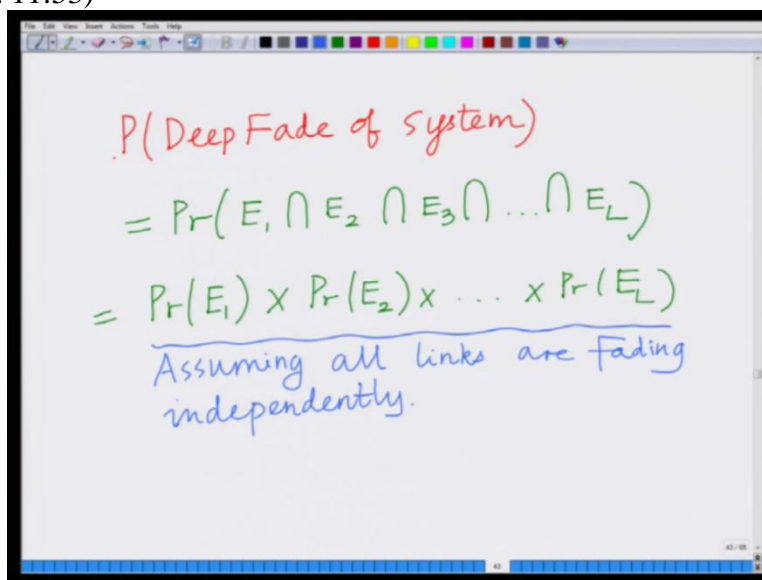 11:55)
File Edit View Insert Actions Tools Help
P(Deep Fade of system)
= Pr(E₁ ∩ E₂ ∩ E₃ ∩ ... ∩ E_L)
= Pr(E₁) x Pr(E₂) x ... x Pr(E_L)
Assuming all links are fading
independently.